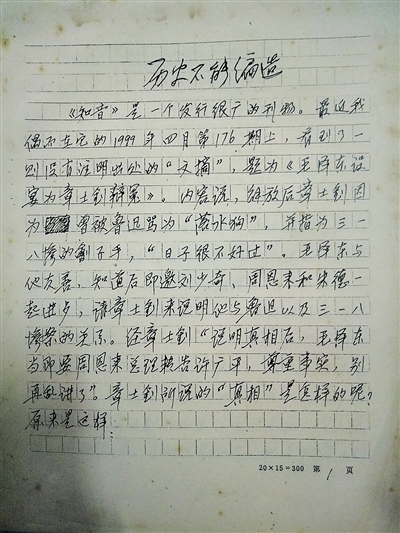 历史不能编造
《知音》是一个发行很广的刊物。最近我
偶尔在它的1999年四月第176期上,看到了一
则没有注明出处的“文摘”,题为《毛泽东设
宴为章士钊辩冤》。内容说,解放后章士钊因
为曾被鲁迅骂为“落水狗”,并指为三一
八惨的刽子手,“日子很不好过”。毛泽东与
他友善,知道后即邀刘少奇、周恩来和朱德一
起进步,请章士钊来说明他与鲁迅以及三一八
惨案的关系。经章士钊“说明真相后,毛泽东
当即要周恩来总理转告许广平,尊重事实,别
再乱讲了”。章士钊所说的“真相”是怎样的呢?
原来是这样:
20×15=300 第 1 页